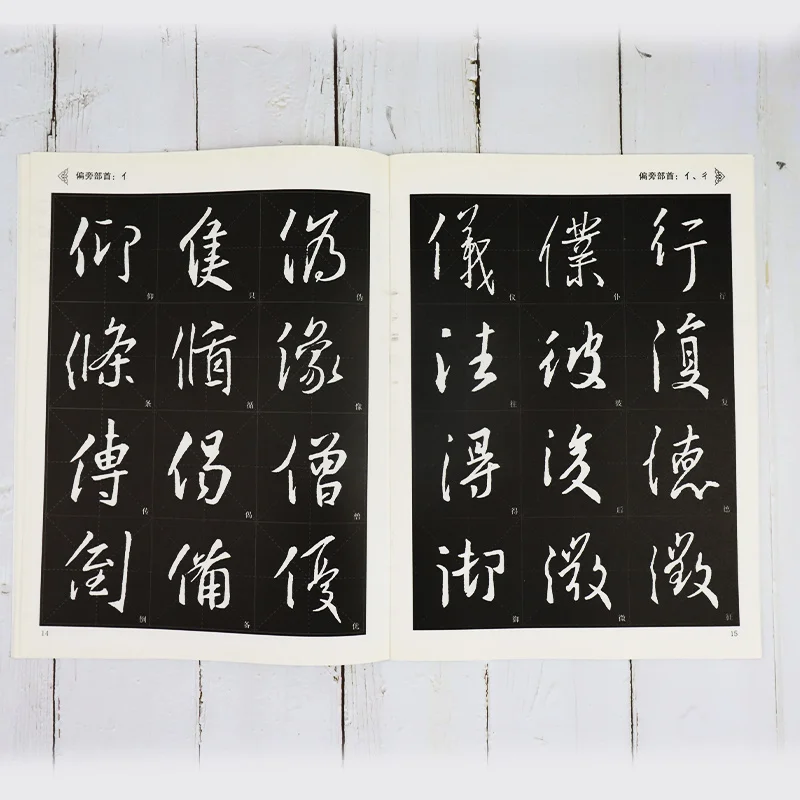 偏旁部首：亻
仰 隻 偽
仰 只 伪
條 循 像
条 循 像
傳 偈 僧
传 偈 僧
倒 備 優
倒 备 优
14
偏旁部首：亻、彳
儀 僕 行
仪 仆 行
往 彼 復
往 彼 复
得 後 德
得 后 德
御 微 徵
御 微
15